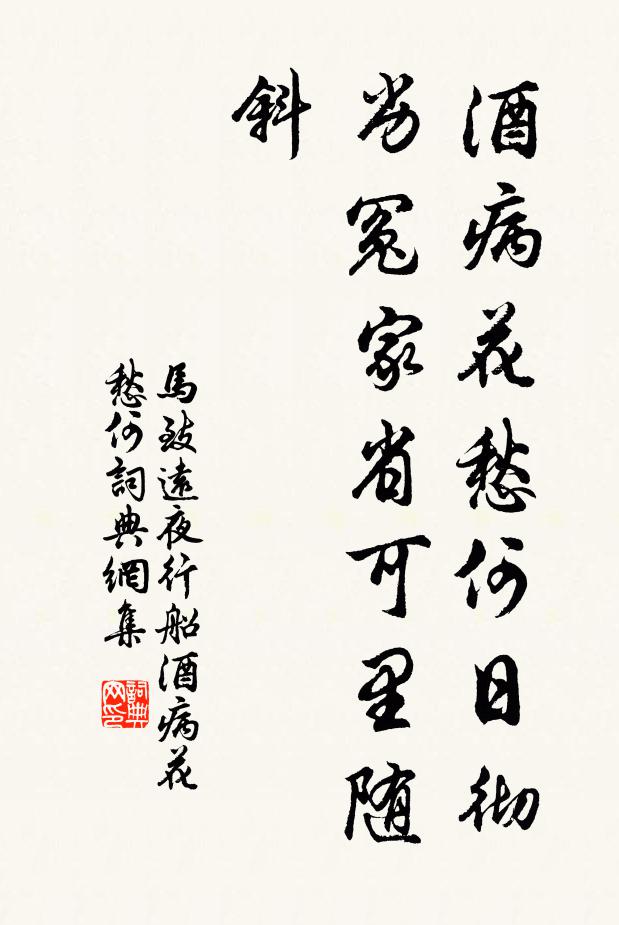 酒病花愁何日彻
劣冤家省可里随
斜
馬致遠夜行船酒病花
愁何詞典網集
詞典
网印